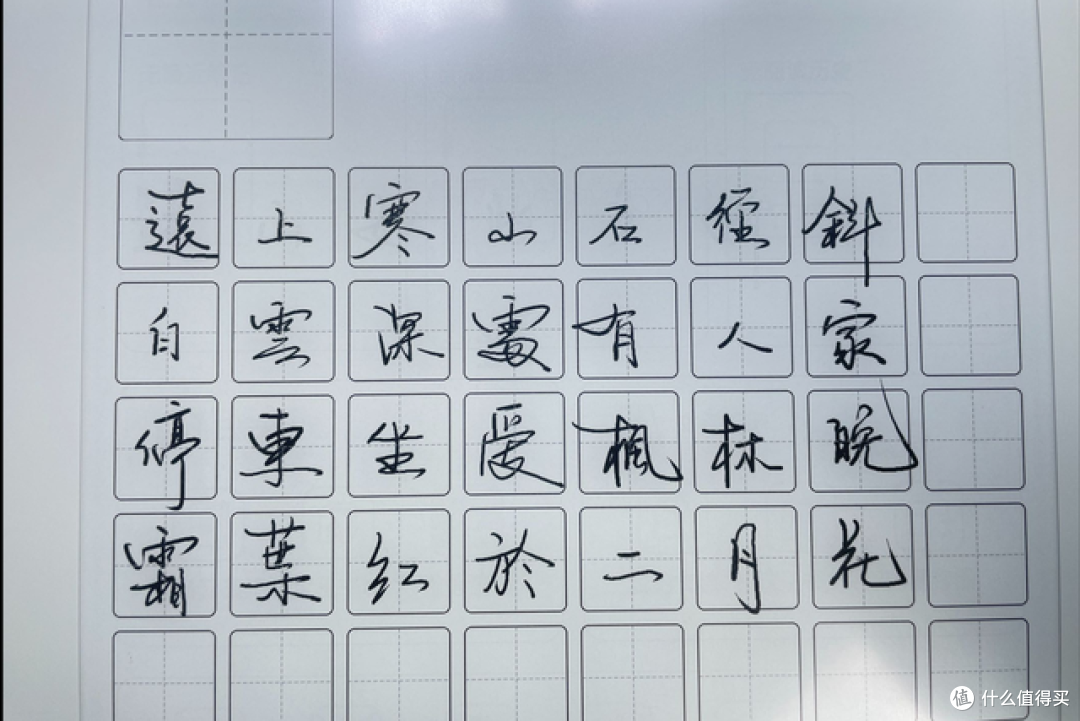 遠上寒山石徑斜
白雲深處有人家
停車坐愛楓林晚
霜葉紅於二月花
值 什么值得买